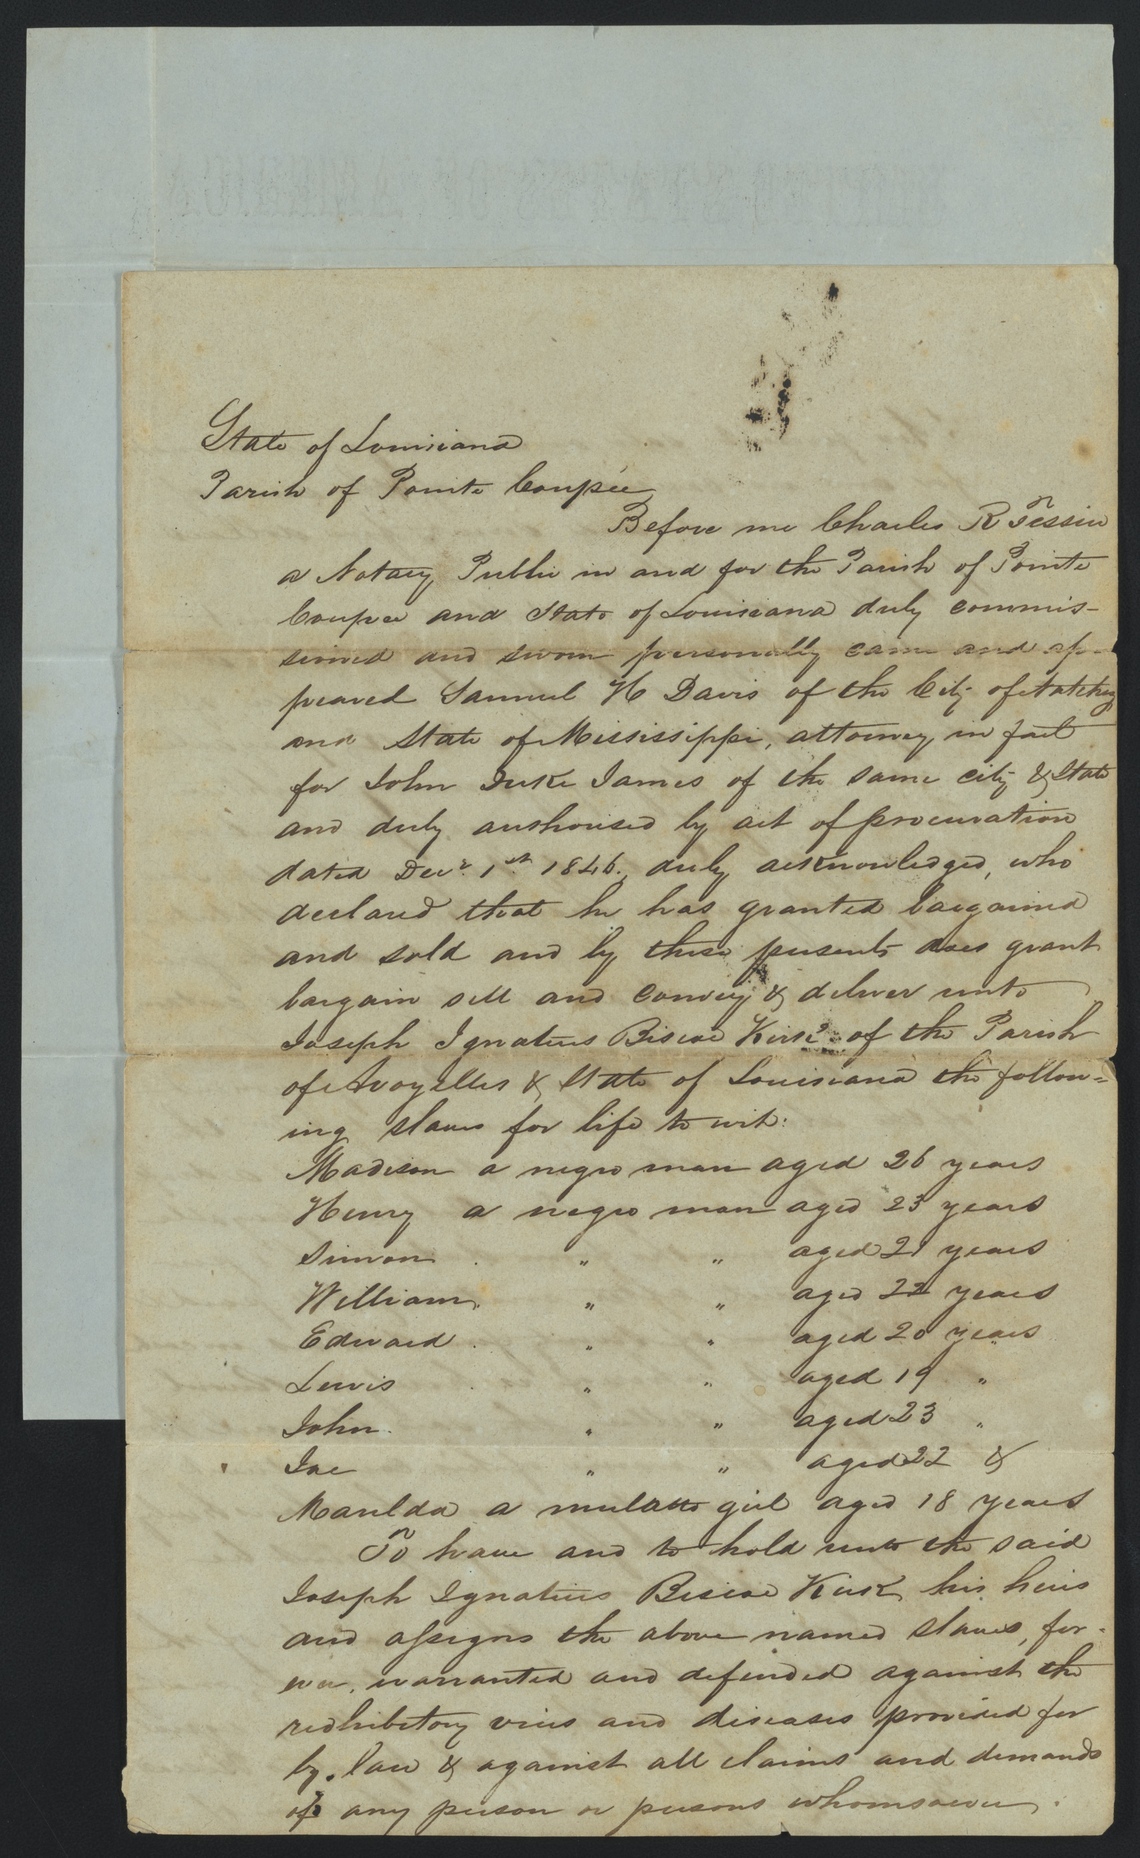 State of Louisiana
Parish of Pointe Coupée
Before me Charles R Tessier
a Notary Public in and for the Parish of Pointe
Coupee and State of Louisiana duly commis-
sioned and sworn personally came and ap-
peared Samuel H Davis of the City of Natchez
and State of Mississippi, attorney in fact
for John Duke James of the same city & State
and duly authorised by act of procuration
dated Decr. 1st 1846, duly acknowledged, who
declared that he has granted bargained
and sold and by these presents does grant
bargain sell and convey & deliver unto
Joseph Ignatius Biscoe Kirk of the Parish
of Avoyelles & State of Louisiana the follow=
ing slaves for life to wit:
Madison a negro man aged 26 years
Henry a negro man aged 23 years
Simon " " aged 21 years
William " " aged 22 years
Edward " " aged 20 years
Lewis " " aged 19 "
John " " aged 23 "
Joe " " aged 22 &
Marilda a mulatto girl aged 18 years
To have and to hold unto the said
Joseph Ignatius Biscoe Kirk his heirs
and assigns the above named slaves, for-
ever, warranted and defended against the
redhibitory vices and diseases provided for
by law & against all claims and demands
of any person or persons whomsoever.